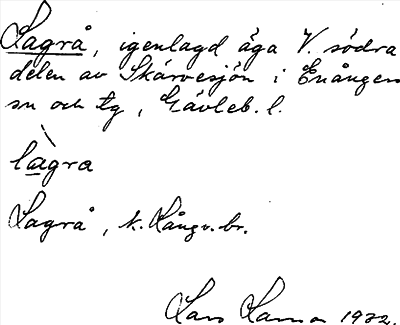 Lagrå, igenlagd äga V. södra
delen av Skärvesjön i Enångers
sn och tg, Gävleb. l.
làgra
Lagrå, k. Långv. br.
Lars 1932.